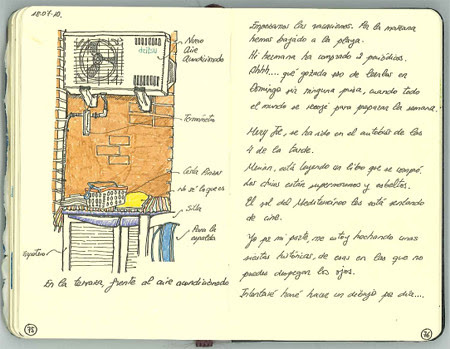 18.07.10.
Nuevo
Aire
Acondicionado
delter
Cesta Pinzas
no sé lo que es
Silla
Para la
espalda
En la terraza, frente al aire acondicionado
75
Empezamos las vacaciones. Por la mañana
hemos bajado a la playa.
Mi hermana ha comprado 2 periódicos.
Ohhh.... qué gozada eso de leerlos en
Domingo sin ninguna prisa, cuando todo
el mundo se recoge para preparar la semana.
se ha ido en el autobús de las
4 de la tarde.
está leyendo un libro que se compró.
Los chicos están supermorenos y esbeltos.
El sol del Mediterráneo les está sentando
de cine.
Yo por mi parte, me estoy hechando unas
siestas históricas, de esas en las que no
puedes despegar los ojos.
Intentaré hacer un dibujo por día....
76